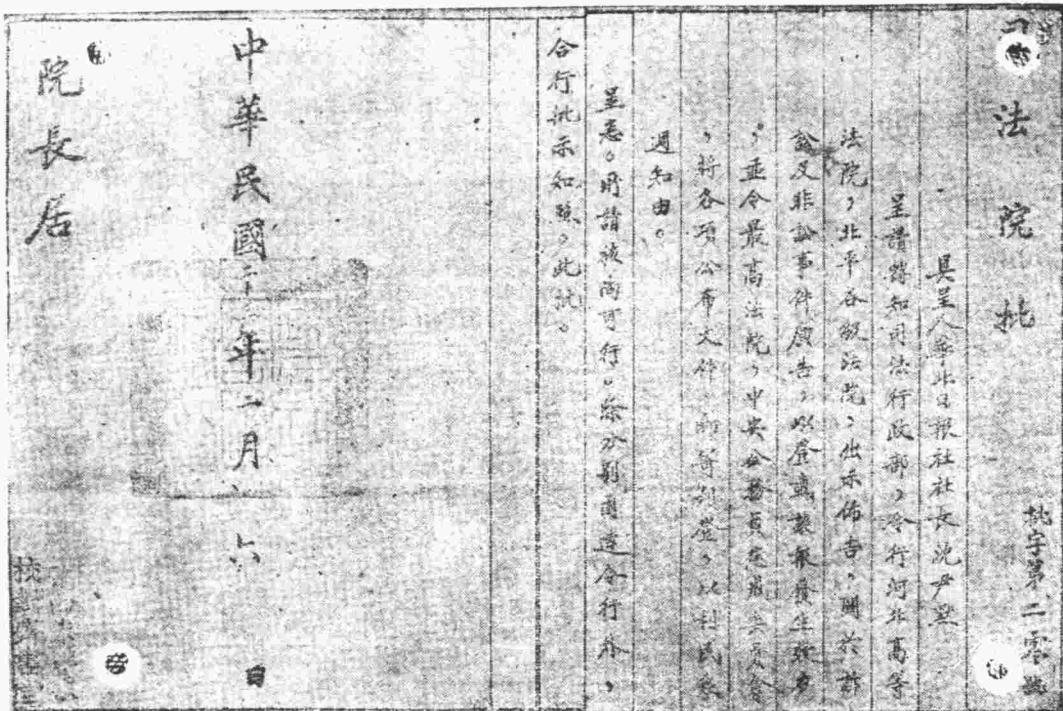 司法院批
批字第二零號
具呈人華北日報社社長沈尹默
呈請轉知司法行政部，令行河北高等
法院，北平各級法院，出示佈告，關於訴
訟及非訟事件廣告，以登載該報發生效力
，並令最高法院，中央公務員懲戒委員會
，將各項公布文件，刊登，以利民眾
週知由。
呈悉。所請被尚可行。除分別函達令行外，
合行批示知照。此批。
中華民國二十 年二月 六 日
院長居
校對